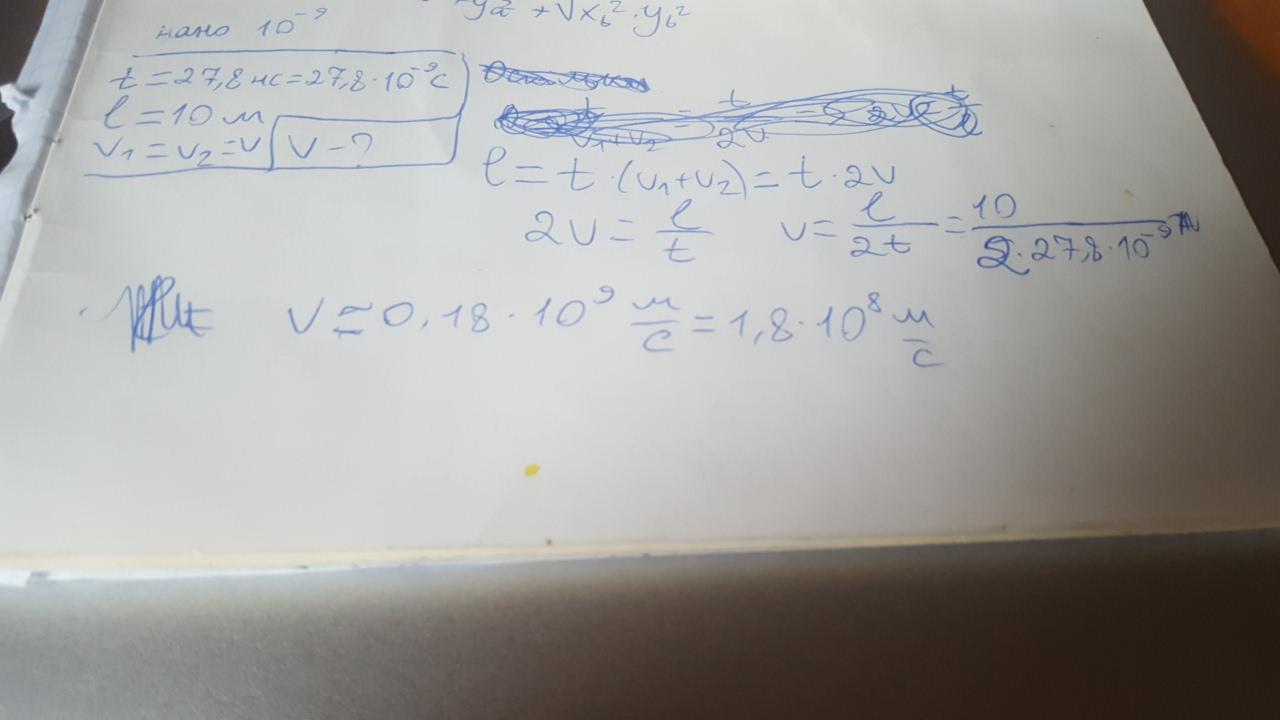 y_a² + √x_b² · y_b²
нано 10⁻⁹
t = 27,8 нс = 27,8 · 10⁻⁹ с
l = 10 м
v₁ = v₂ = v V – ?
l = t · (v₁ + v₂) = t · 2v
2v = l/t v = l/2t = 10/2 · 27,8 · 10⁻⁹
V ≃ 0,18 · 10⁹ м/с = 1,8 · 10⁸ м/с